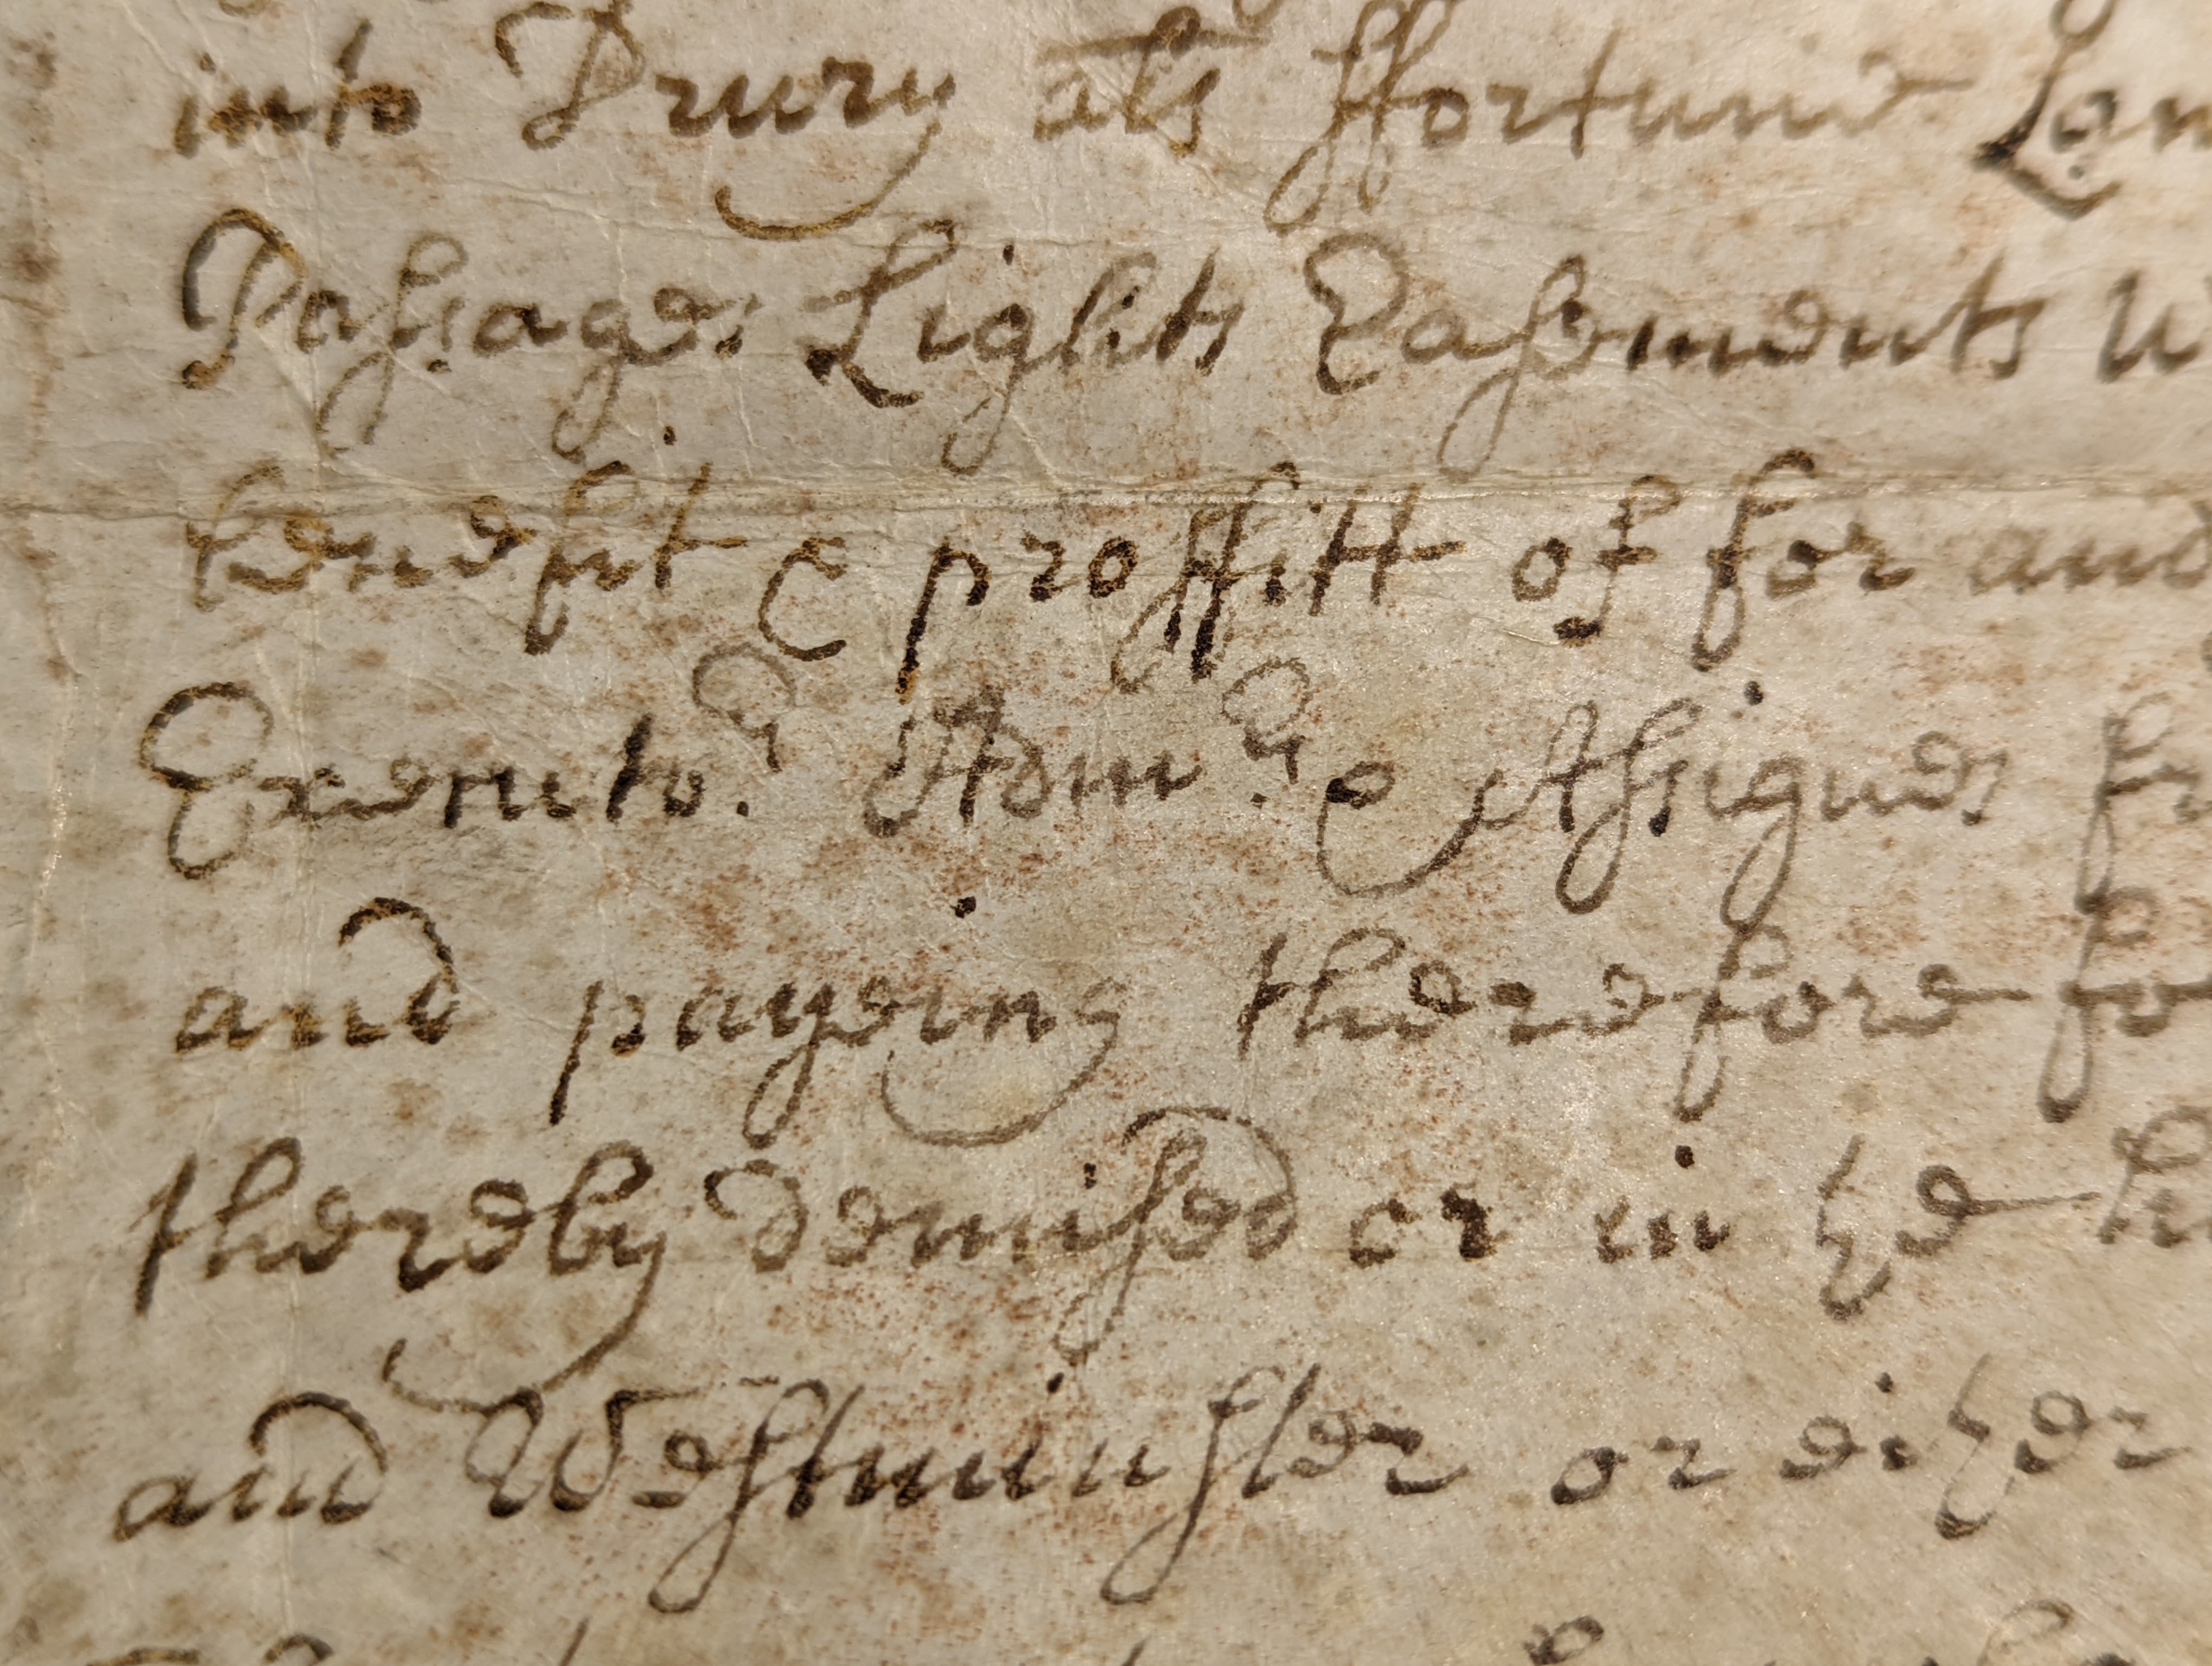 into Drury als ffortune Lan
Passages Lights Easements w
benefit & proffitt of for and
Executo.rs Adm.rs & Assignes fr
and payeing therefore fo
thereby demised or in ye hi
and Westminster or either